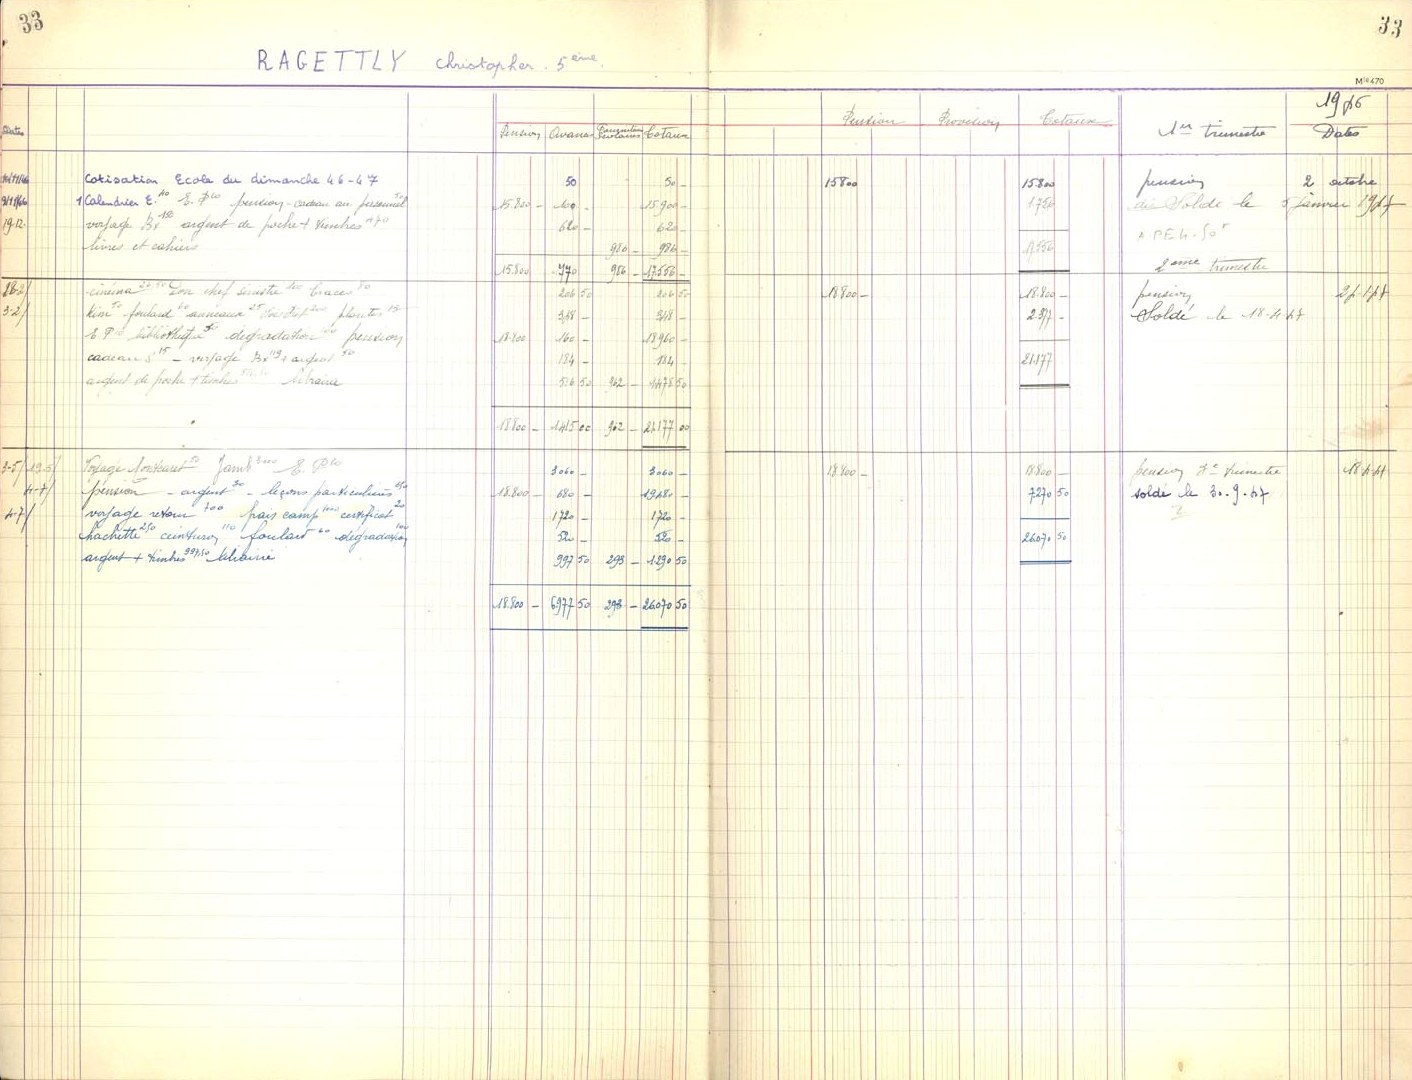 33
RAGETTLY Christopher. 5ème.
Dates Pension Avances Fournitures Scolaires Totaux
Cotisation Ecole du dimanche 46-47 50 50 -
1 Calendrier E. 40 E. P 10 pension - cadeau au personnel 50 15.800 - 100 - 15.900 -
19.12 voyage Bx argent de poche + timbres 620 - 620 -
livres et cahiers 986 - 986 -
15.800 770 986 - 17.556 -
cinéma Bon chef sinistré 206 50 206 50
3-2/ kim 50 foulard anneaux 25 plantes 15 348 - 348 -
E. P 10 bibliothèque 50 dégradation 100 pension 18.800 - 160 - 18960 -
cadeau S 15 - voyage Bx 119 + argent 50 184 - 184 -
argent de poche + timbres librairie 516 50 962 - 1478 50
18800 - 1415 00 962 - 21.177 00
3-5/ 19.5/ Voyage 50 Jamb 3000 E. P 10 3060 - 3060 -
4-7/ pension - argent 30 - leçons particulières 650 18.800 - 680 - 19.480 -
4-7/ voyage retour 700 frais camp 1000 certificat 20 1720 - 1720 -
hachette 250 ceinturon 110 foulard 60 dégradation 100 520 - 520 -
argent + timbres 997,50 librairie 997 50 293 - 1.290 50
18.800 - 6.977 50 293 - 26.070 50
33
Mle 470
Pension Provision Totaux 1er trimestre 1946 Dates
15800 15800 pension 2 octobre
1.756 Solde le 5 janvier 1947
17.556 A P E 4 - 50
2ème trimestre
18800 - 18.800 - pension
2.377 - Soldé le 18-4-47
21.177
18.800 - 18.800 - pension 3e trimestre 18-4-47
7.270 50 soldé le 30-9-47
26.070 50 ?